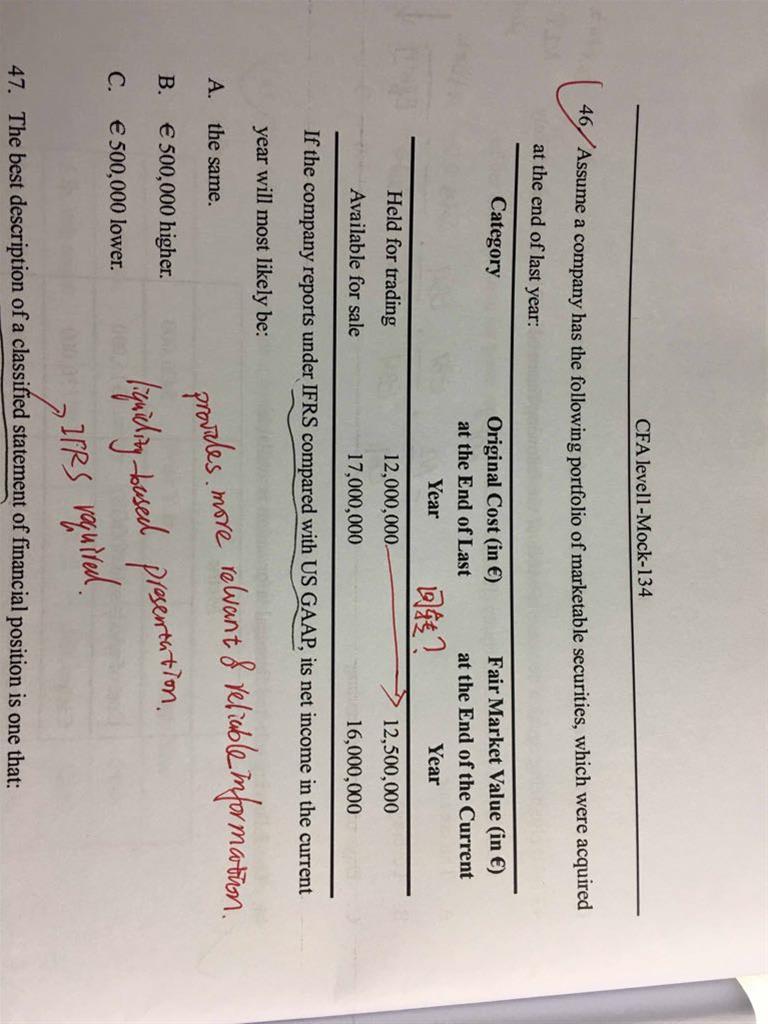 CFA level1-Mock-134
46 Assume a company has the following portfolio of marketable securities, which were acquired
at the end of last year:
Category Original Cost (in €) at the End of Last Year Fair Market Value (in €) at the End of the Current Year
回转?
Held for trading 12,000,000 12,500,000
Available for sale 17,000,000 16,000,000
If the company reports under IFRS compared with US GAAP, its net income in the current
year will most likely be:
A. the same.
B. €500,000 higher.
C. €500,000 lower.
provides more relevant & reliable information.
liquidity-based presentation.
IFRS required.
47. The best description of a classified statement of financial position is one that: